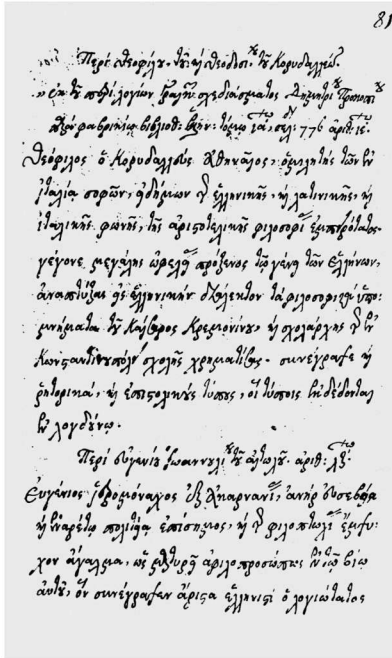 81
Περὶ Θεοφίλου, τοῦ καὶ Θεοδοσίου τοῦ Κορυδαλλέως.
ἐκ τοῦ περὶ λογίων Γραικῶν σχεδιάσματος Δημητρίου Προκοπίου
Φαβρικίου βιβλιοθ: τόμῳ ια, σελ: 776 ἀριθ: ιε.
Θεόφιλος ὁ Κορυδαλλεὺς Ἀθηναῖος, ὁμιλητὴς τῶν ἐν
Ἰταλίᾳ σοφῶν, εἰδήμων τῆς ἑλληνικῆς, καὶ λατινικῆς, καὶ
ἰταλικῆς φωνῆς, τῆς ἀριστοτελικῆς φιλοσοφίας ἐμπειρότατος.
γέγονε μεγάλης ὠφελείας πρόξενος τῷ γένει τῶν Ἑλλήνων,
ἀναπτύξας εἰς ἑλληνικὴν διάλεκτον τὰ φιλοσοφικὰ ὑπο-
μνήματα τοῦ Καίσαρος Κρεμονίνου, καὶ σχολάρχης τῆς ἐν
Κωνσταντινουπόλει σχολῆς χρηματίσας. συνέγραψε καὶ
ῥητορικὰ, καὶ ἐπιστολικοὺς τύπους, οἳ τύποις ἐκδέδονται
ἐν λογδούνῳ.
Περὶ Εὐγενίου Ἰωαννουλίου τοῦ Αἰτωλοῦ. ἀριθ:
Εὐγένιος ἱερομόναχος ἐξ Ἀκαρνανίας, ἀνὴρ εὐσεβείᾳ
καὶ ἐναρέτῳ πολιτείᾳ ἐπίσημος, καὶ τῆς φιλοπτωχίας ἔμψυ-
χον ἄγαλμα, ὡς μαρτυρεῖ ἀφιλοπροσώπως ἐν τῷ βίῳ
αὐτοῦ, ὃν συνέγραψεν ἄριστα ἑλληνιστὶ ὁ λογιώτατος